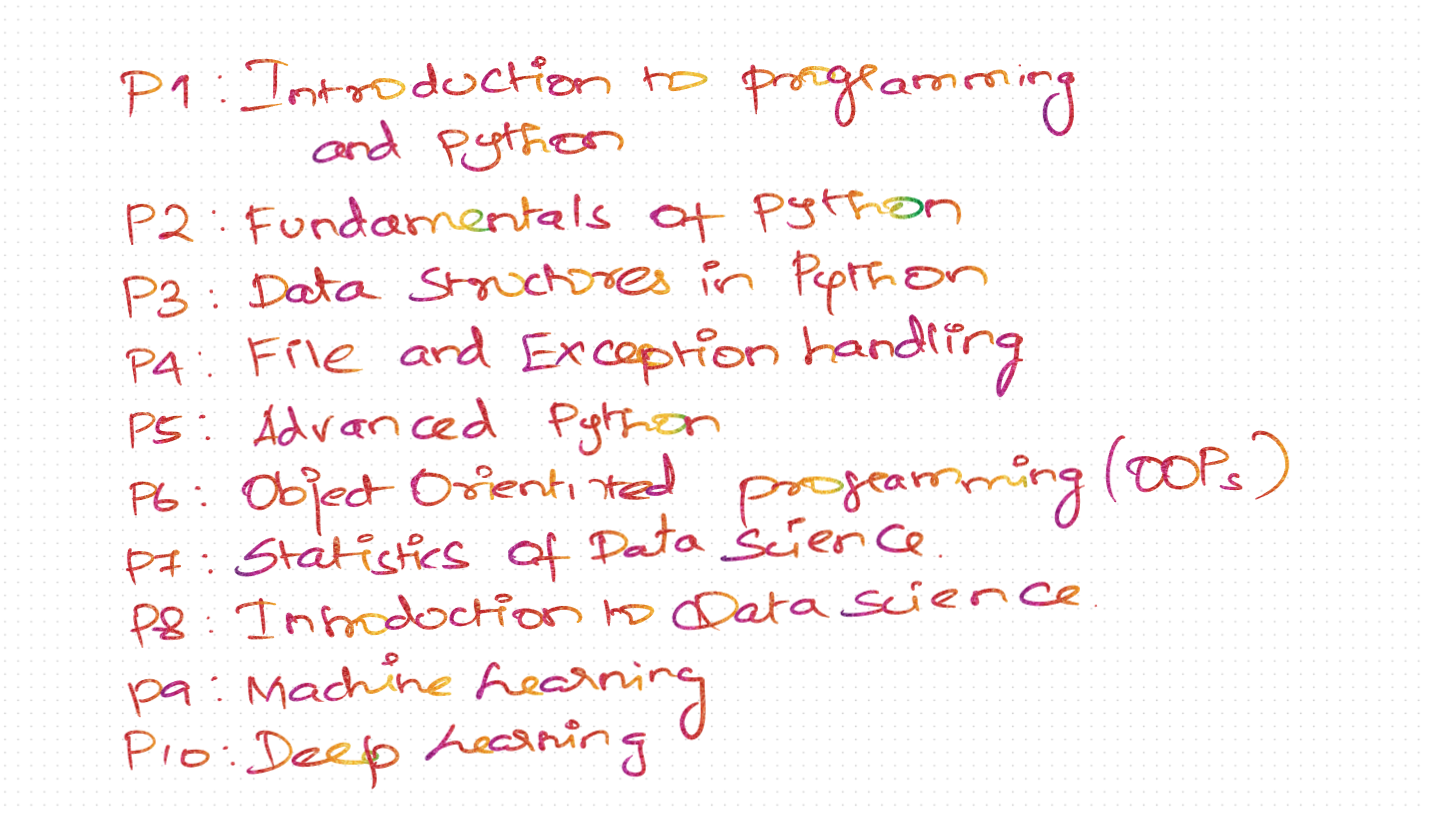 P1: Introduction to programming
and Python
P2: Fundamentals of Python
P3: Data Structures in Python
P4: File and Exception handling
P5: Advanced Python
P6: Object Oriented programming (OOPs)
P7: Statistics of Data Science.
P8: Introduction to Data science.
P9: Machine Learning
P10: Deep Learning